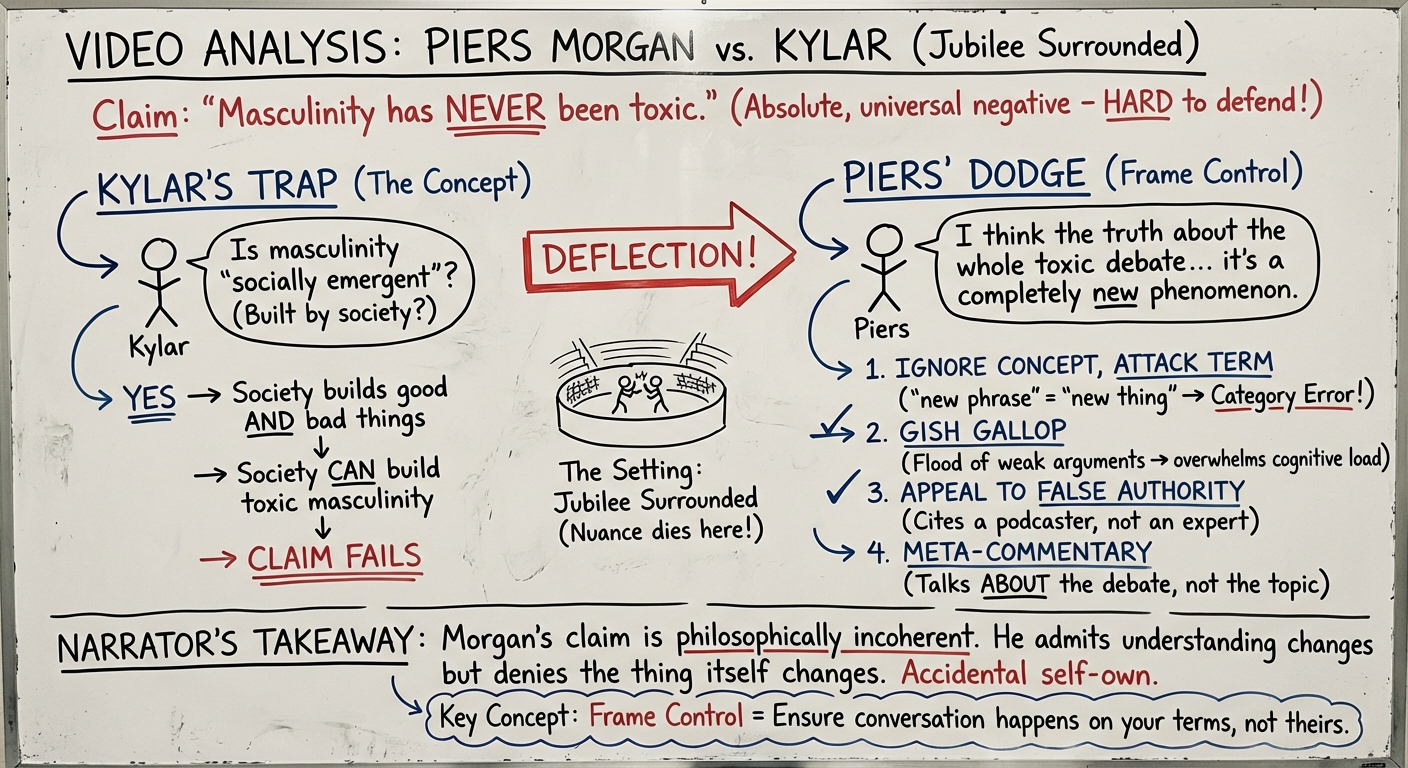 VIDEO ANALYSIS: PIERS MORGAN vs. KYLAR (Jubilee Surrounded)
Claim: “Masculinity has NEVER been toxic.” (Absolute, universal negative – HARD to defend!)
KYLAR'S TRAP (The Concept)
Is masculinity
“socially emergent”?
(Built by society?)
Kylar
YES → Society builds good
AND bad things
↓
→ Society CAN build
toxic masculinity
↓
→ CLAIM FAILS
DEFLECTION!
The Setting:
Jubilee Surrounded
(Nuance dies here!)
PIERS' DODGE (Frame Control)
I think the truth about the
whole toxic debate... it's a
completely new phenomenon.
Piers
1. IGNORE CONCEPT, ATTACK TERM
(“new phrase” = “new thing” → Category Error!)
2. GISH GALLOP
(Flood of weak arguments → overwhelms cognitive load)
✓ 3. APPEAL TO FALSE AUTHORITY
(Cites a podcaster, not an expert)
4. META-COMMENTARY
(Talks ABOUT the debate, not the topic)
NARRATOR'S TAKEAWAY: Morgan's claim is philosophically incoherent. He admits understanding changes
but denies the thing itself changes. Accidental self-own.
Key Concept: Frame Control = Ensure conversation happens on your terms, not theirs.